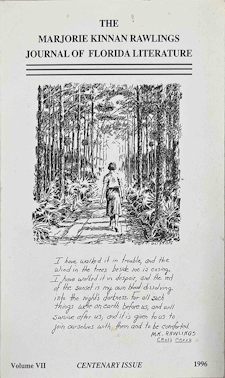 THE
MARJORIE KINNAN RAWLINGS
JOURNAL OF FLORIDA LITERATURE
I have walked it in trouble, and the
wind in the trees beside me is easing.
I have walked it in despair, and the red
of the sunset is my own blood dissolving
into the night's darkness. For all such
things were on earth before us, and will
survive after us, and it is given to us to
join ourselves with them and to be comforted.
M.K. RAWLINGS
CROSS CREEK
Volume VII
CENTENARY ISSUE
1996